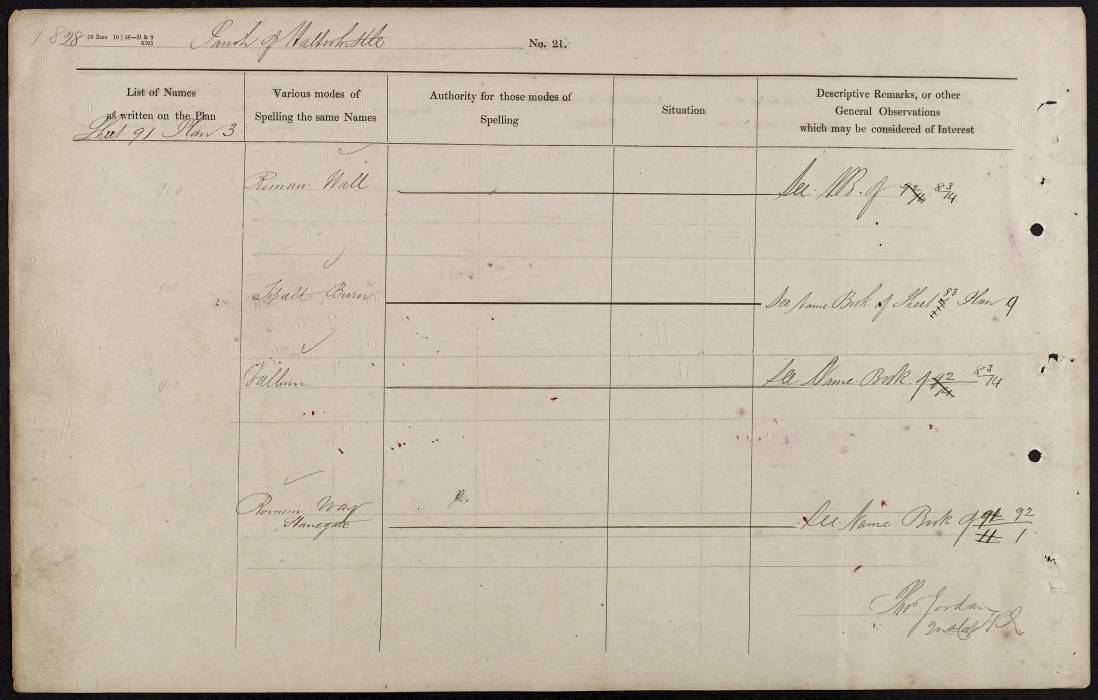 28
Parish of Haltwhistle
No. 21.
List of Names
as written on the Plan
Sheet 91 Plan 3
Various modes of
Spelling the same Names
Authority for those modes of
Spelling
Situation
Descriptive Remarks, or other
General Observations
which may be considered of Interest
Roman Wall
See N.B. of 92/14 83/14
Tipalt Burn
See Name Book of Sheet 83 Plan 9
Vallum
See Name Book of 92/14 83/14
Roman Way
Stanegate
See Name Book of 91/11 92/1
Thos Jordan
2nd Cap R E